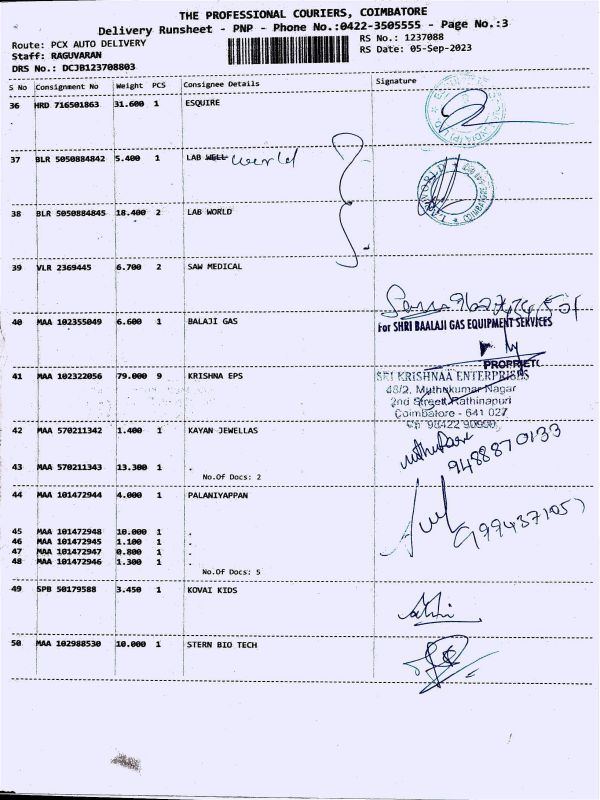 THE PROFESSIONAL COURIERS, COIMBATORE
Delivery Runsheet - PNP - Phone No.:0422-3505555 - Page No.:3
Route: PCX AUTO DELIVERY
RS No.: 1237088
Staff: RAGUVARAN
RS Date: 05-Sep-2023
DRS No.: DCJB123708803
S No Consignment No Weight PCS Consignee Details Signature
36 HRD 716501863 31.600 1 ESQUIRE
37 BLR 5050884842 5.400 1 LAB WELL world
38 BLR 5050884845 18.400 2 LAB WORLD
39 VLR 2369445 6.700 2 SAW MEDICAL
40 MAA 102355049 6.600 1 BALAJI GAS
For SHRI BAALAJI GAS EQUIPMENT SERVICES
41 MAA 102322056 79.000 9 KRISHNA EPS
SRI KRISHNAA ENTERPRISES
48/2, Muthukumar Nagar
2nd Street, Rathinapuri
Coimbatore - 641 027
42 MAA 570211342 1.400 1 KAYAN JEWELLAS
9488870133
43 MAA 570211343 13.300 1 .
No.Of Docs: 2
44 MAA 101472944 4.000 1 PALANIYAPPAN
45 MAA 101472948 10.000 1 .
46 MAA 101472945 1.100 1 .
47 MAA 101472947 0.800 1 .
48 MAA 101472946 1.300 1 .
No.Of Docs: 5
49 SPB 50179588 3.450 1 KOVAI KIDS
50 MAA 102988530 10.000 1 STERN BIO TECH